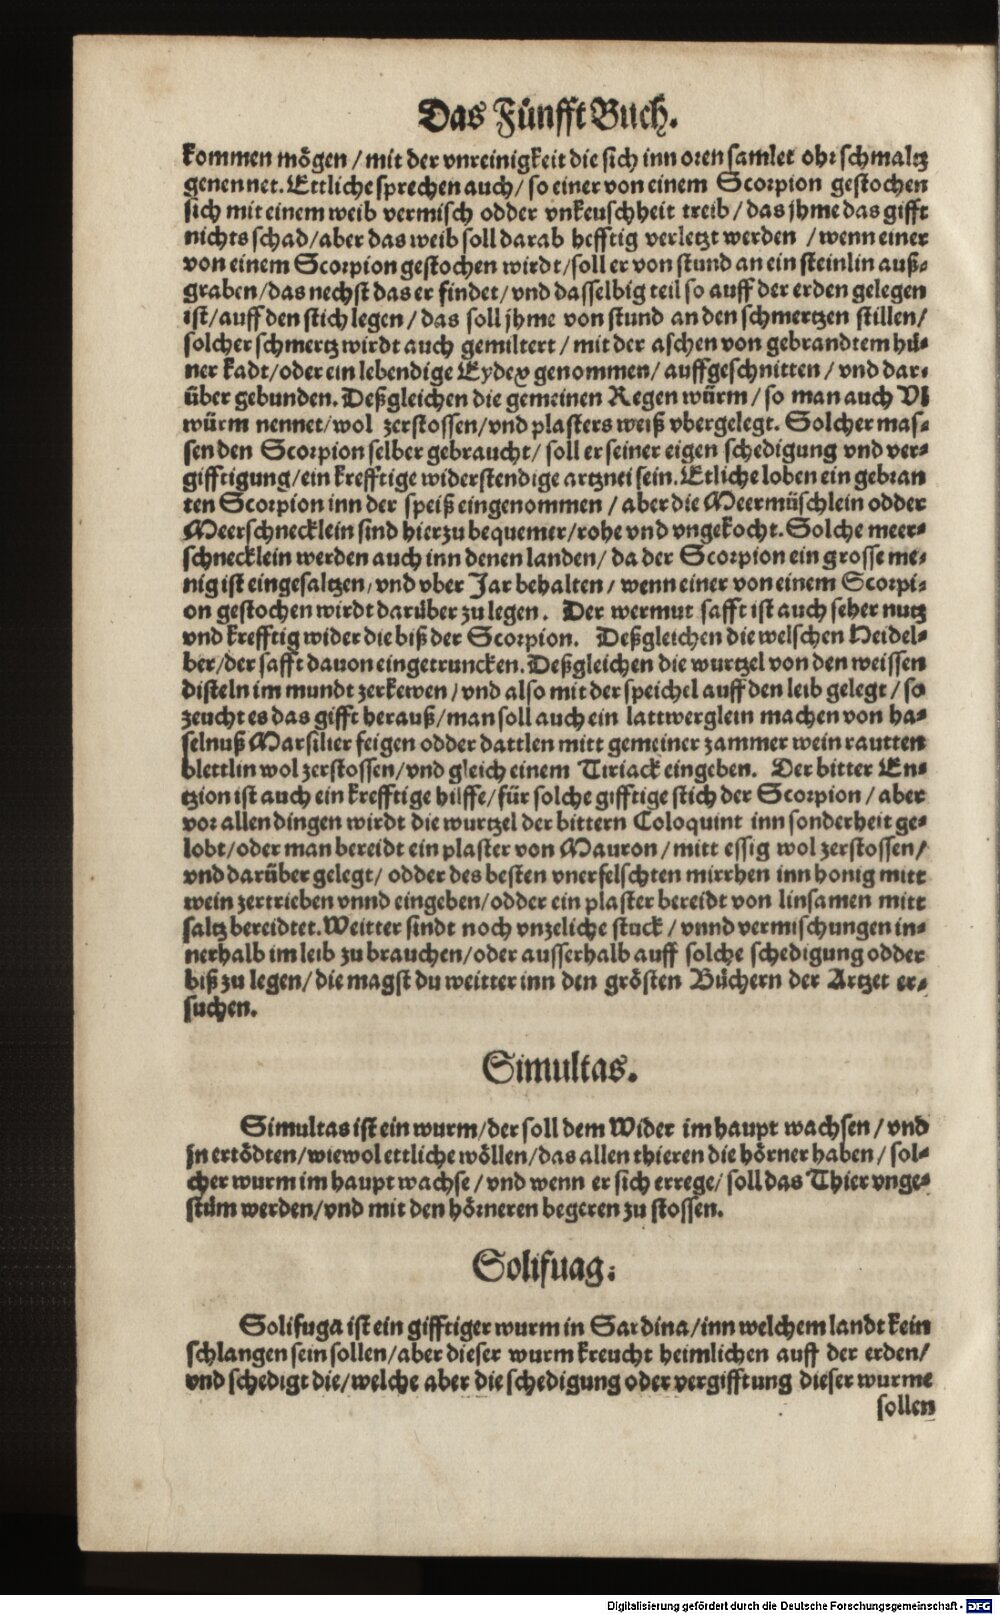 Das Fünfft Buch.
kommen mögen / mit der vnreinigkeit die sich inn oren samlet ohrschmaltz
genennet. Ettliche sprechen auch / so einer von einem Scorpion gestochen
sich mit einem weib vermisch odder vnkeuschheit treib / das jhme das gifft
nichts schad / aber das weib soll darab hefftig verletzt werden / wenn einer
von einem Scorpion gestochen wirdt / soll er von stund an ein steinlin auß-
graben / das nechst das er findet / vnd dasselbig teil so auff der erden gelegen
ist / auff den stich legen / das soll jhme von stund an den schmertzen stillen /
solcher schmertz wirdt auch gemiltert / mit der aschen von gebrandtem hü-
ner kadt / oder ein lebendige Eydex genommen / auffgeschnitten / vnd dar-
über gebunden. Deßgleichen die gemeinen Regen würm / so man auch Vl
würm nennet / wol zerstossen / vnd plasters weiß vbergelegt. Solcher mas-
sen den Scorpion selber gebraucht / soll er seiner eigen schedigung vnd ver-
gifftigung / ein krefftige widerstendige artznei sein. Etliche loben ein gebran
ten Scorpion inn der speiß eingenommen / aber die Meermüschlein odder
Meerschnecklein sind hierzu bequemer / rohe vnd vngekocht. Solche meer-
schnecklein werden auch inn denen landen / da der Scorpion ein grosse me-
nig ist eingesaltzen / vnd vber Jar behalten / wenn einer von einem Scorpi-
on gestochen wirdt darüber zu legen. Der wermut safft ist auch seher nutz
vnd krefftig wider die biß der Scorpion. Deßgleichen die welschen Heidel-
ber / der safft dauon eingetruncken. Deßgleichen die wurtzel von den weissen
disteln im mundt zerkewen / vnd also mit der speichel auff den leib gelegt / so
zeucht es das gifft herauß / man soll auch ein lattwerglein machen von ha-
selnuß Marsilier feigen odder dattlen mitt gemeiner zammer wein rautten
blettlin wol zerstossen / vnd gleich einem Tiriack eingeben. Der bitter En-
tzion ist auch ein krefftige hilffe / für solche gifftige stich der Scorpion / aber
vor allen dingen wirdt die wurtzel der bittern Coloquint inn sonderheit ge-
lobt / oder man bereidt ein plaster von Mauron / mitt essig wol zerstossen /
vnd darüber gelegt / odder des besten vnerfelschten mirrhen inn honig mitt
wein zertrieben vnnd eingeben / odder ein plaster bereidt von linsamen mitt
saltz bereidtet. Weitter sindt noch vnzeliche stuck / vnnd vermischungen in-
nerhalb im leib zu brauchen / oder ausserhalb auff solche schedigung odder
biß zu legen / die magst du weitter inn den grösten Büchern der Artzet er-
suchen.
Simultas.
Simultas ist ein wurm / der soll dem Wider im haupt wachsen / vnd
jn ertödten / wiewol ettliche wöllen / das allen thieren die hörner haben / sol-
cher wurm im haupt wachse / vnd wenn er sich errege / soll das Thier vnge-
stüm werden / vnd mit den hörneren begeren zu stossen.
Solifuag:
Solifuga ist ein gifftiger wurm in Sardina / inn welchem landt kein
schlangen sein sollen / aber dieser wurm kreucht heimlichen auff der erden /
vnd schedigt die / welche aber die schedigung oder vergifftung dieser wurme
sollen
Digitalisierung gefördert durch die Deutsche Forschungsgemeinschaft - DFG